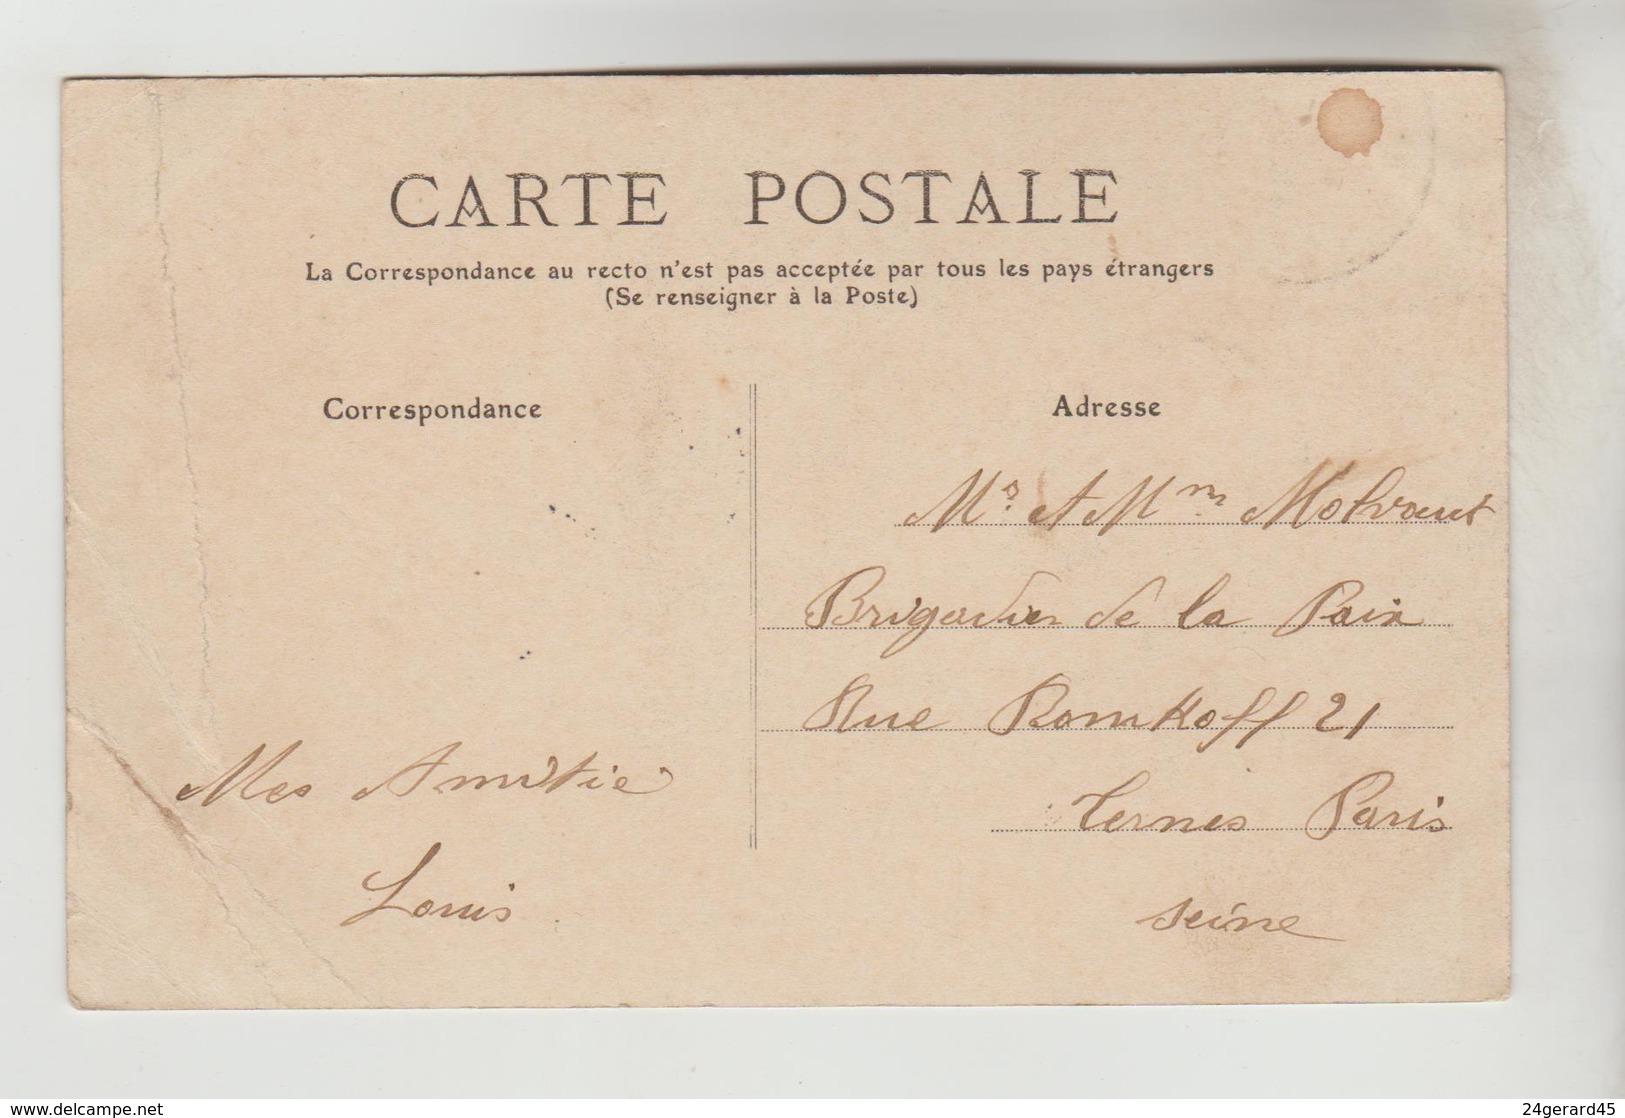 CARTE POSTALE
La Correspondance au recto n'est pas acceptée par tous les pays étrangers
(Se renseigner à la Poste)
Correspondance
Adresse
Mr. et Mm
Brigadier de la Paix
Rue Bomkoff 21
Ternes Paris
Seine
Mes Amitié
Louis
www.delcampe.net
24gerard45